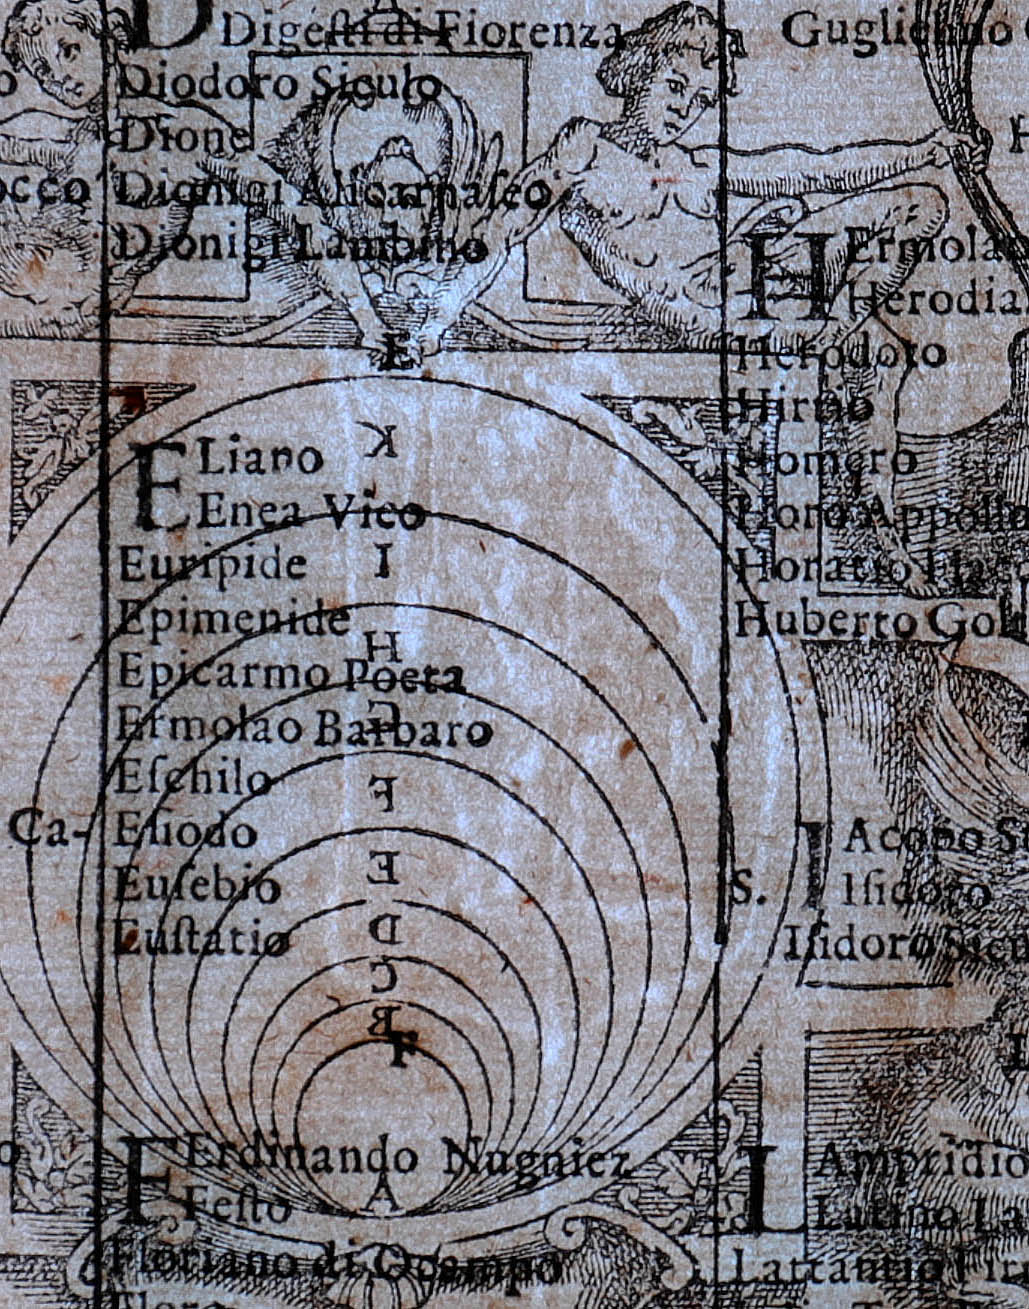 D Digeſti di Fiorenza
Diodoro Siculo
Dione
Dionigi Alicarnaſeo
Dionigi Lambino
E
ELiano
Enea Vico
Euripide
Epimenide
Epicarmo Poeta
Ermolao Barbaro
Eſchilo
Eſiodo
Euſebio
Euſtatio
F
FErdinando Nugniez
Feſto
Floriano di Ocampo
HErmolao
Herodia
Herodoto
Hirtio
Homero
Horo Appollo
Horatio
Huberto Gol
S.
IAcopo
Iſidoro
Iſidoro
LAmpridio
Latino La
Lattantio Fir
occo
Ca-
K
I
H
G
F
E
D
C
B
A